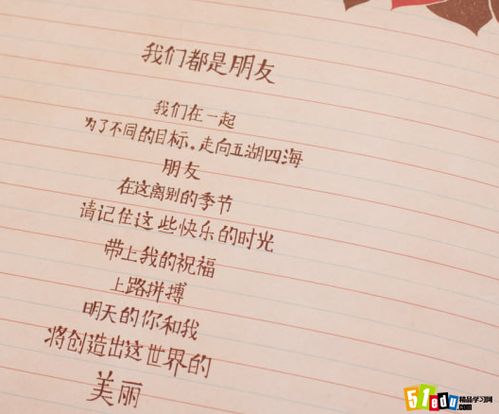 我们都是朋友
我们在一起
为了不同的目标，走向五湖四海
朋友
在这离别的季节
请记住这些快乐的时光
带上我的祝福
上路拼搏
明天的你和我
将创造出这世界的
美丽
51edu精品学习网
.com